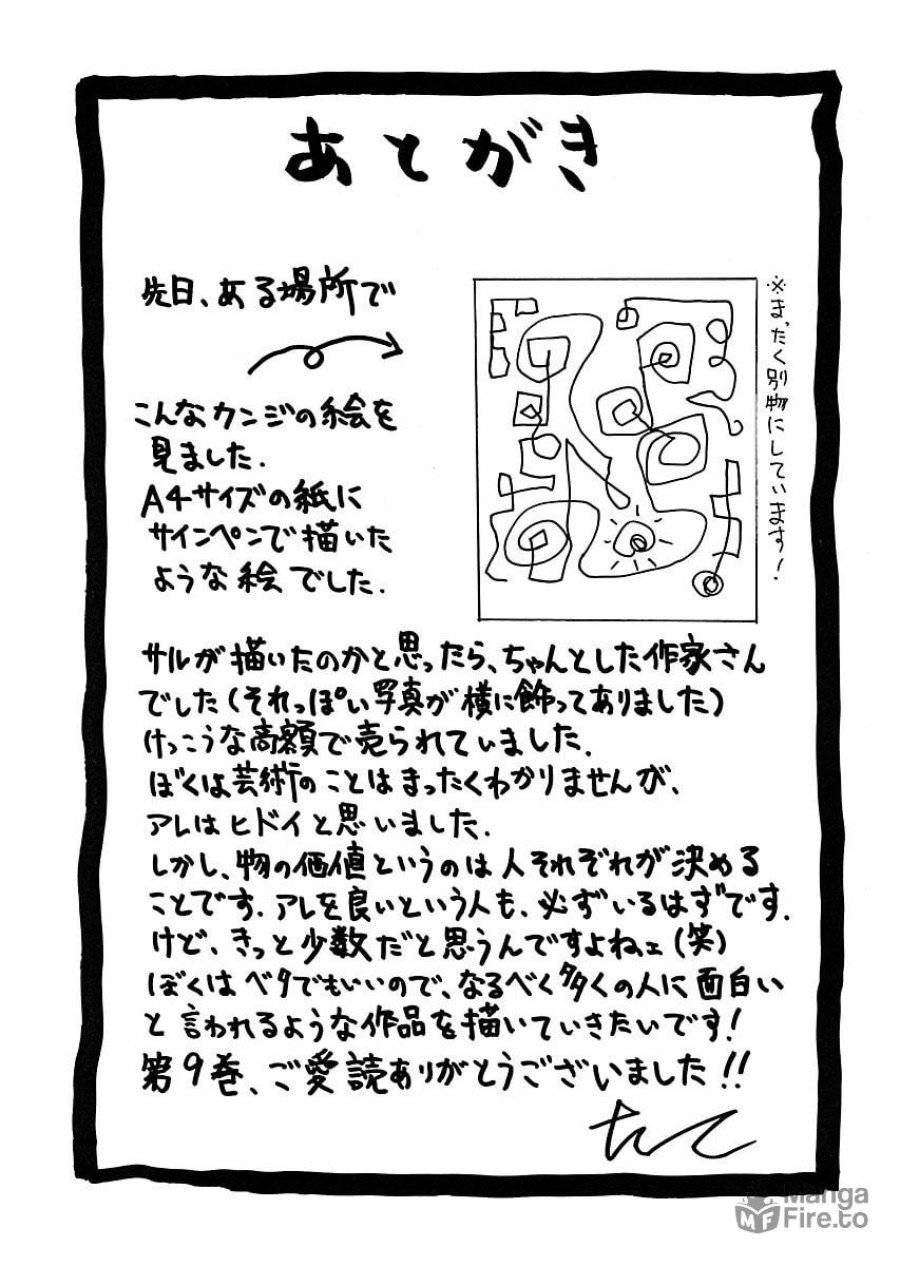 あとがき
先日、ある場所で
こんなカンジの絵を
見ました.
A4サイズの紙に
サインペンで描いた
ような絵でした.
※まったく別物にしています!
サルが描いたのかと思ったら、ちゃんとした作家さん
でした(それっぽい写真が横に飾ってありました)
けっこうな高額で売られていました.
ぼくは芸術のことはまったくわかりませんが、
アレはヒドイと思いました.
しかし、物の価値というのは人それぞれが決める
ことです.アレを良いという人も、必ずいるはずです.
けど、きっと少数だと思うんですよねェ(笑)
ぼくはベタでもいいので、なるべく多くの人に面白い
と言われるような作品を描いていきたいです!
第9巻、ご愛読ありがとうございました!!
Manga
MF Fire.to